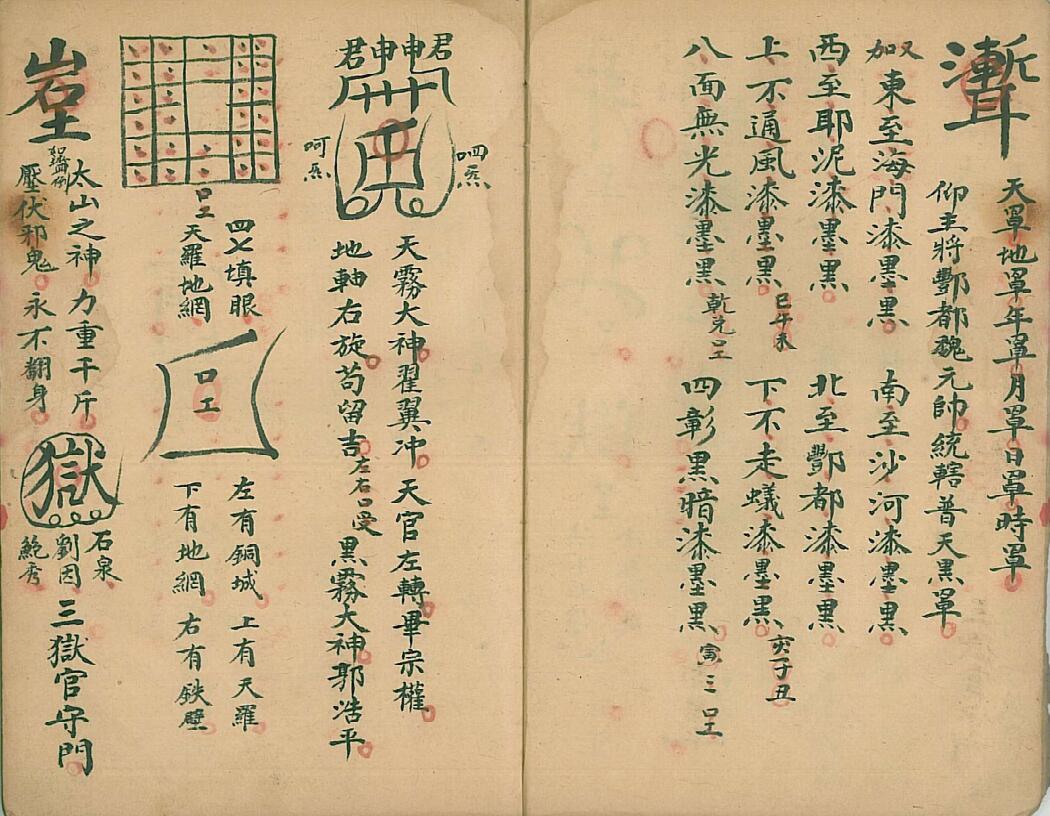 天罩地罩年罩月罩日罩時罩
仰主將酆都魏元帥統轄普天黑罩
東至海門漆墨黑 南至沙河漆墨黑
西至耶泥漆墨黑 北至酆都漆墨黑
上不通風漆墨黑 巳午未 下不走蟻漆墨黑 亥子丑
八面無光漆墨黑 乾兌 四彰黑暗漆墨黑 寅三
君申申君
呬炁
呵炁
天霧大神翟翼冲 天官左轉畢宗權
地軸右旋苟留吉 左右口受 黑霧大神郭浩平
四七填眼
天羅地網
口工
左有銅城 上有天羅
下有地網 右有鉄壁
太山之神 力重千斤
壓伏邪鬼 永不翻身
獄
石泉
劉因
鮑秀
三獄官守門